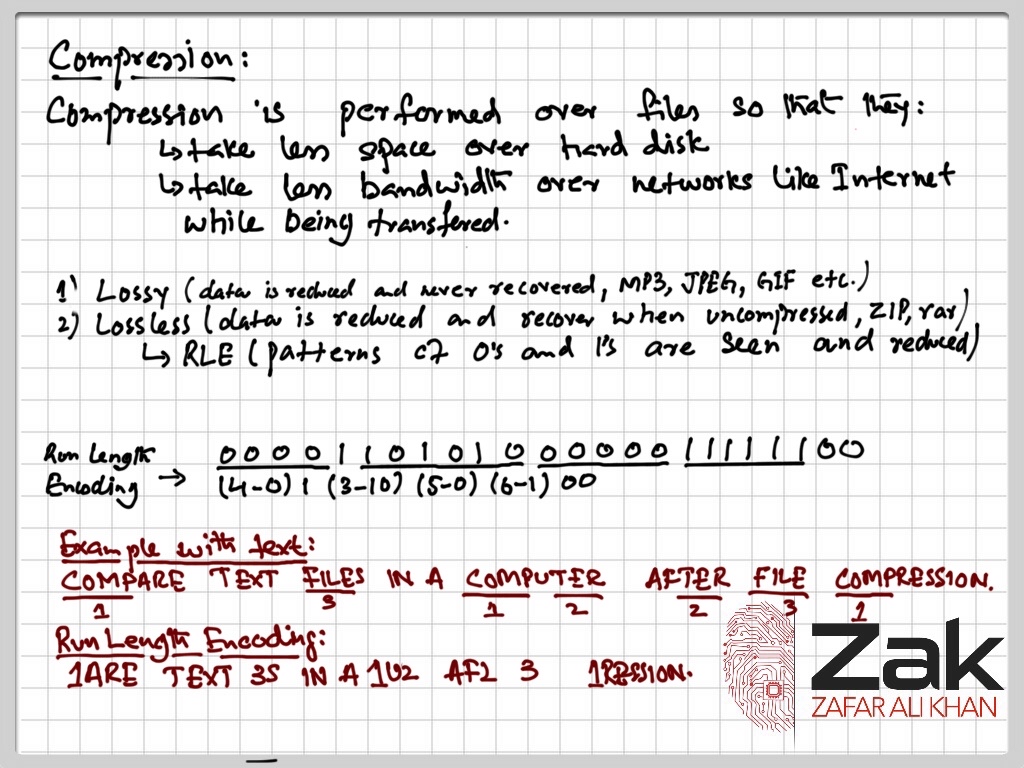 Compression:
Compression is performed over files so that they:
↳ take less space over hard disk
↳ take less bandwidth over networks like Internet
while being transfered.
1) Lossy (data is reduced and never recovered, MP3, JPEG, GIF etc.)
2) Lossless (data is reduced and recover when uncompressed, ZIP, rar)
↳ RLE (patterns of 0's and 1's are seen and reduced)
Run Length 0 0 0 0 1 1 0 1 0 1 0 0 0 0 0 0 1 1 1 1 1 1 0 0
Encoding → (4-0) 1 (3-10) (5-0) (6-1) 00
Example with text:
COMPARE TEXT FILES IN A COMPUTER AFTER FILE COMPRESSION.
1 3 1 2 2 3 1
Run Length Encoding:
1ARE TEXT 3S IN A 1U2 AF2 3 1RESSION.
Zak
ZAFAR ALI KHAN